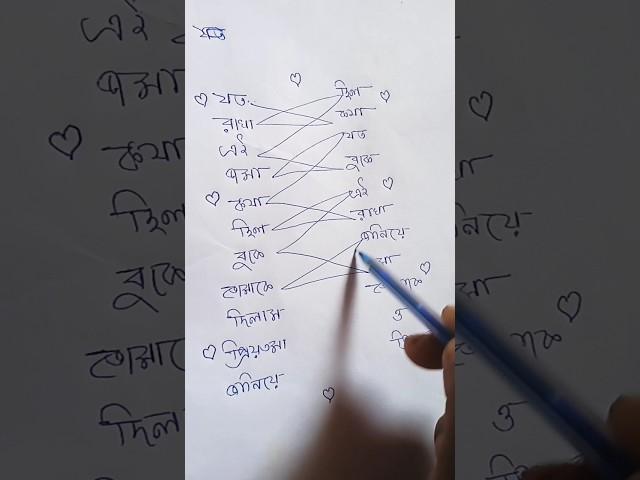 যত
যত
রাখা
এই
জমা
কথা
ছিল
বুকে
তোমাকে
দিলাম
প্রিয়তমা
জানিয়ে
ছিল
কথা
যত
বুকে
এই
রাখা
জানিয়ে
ও